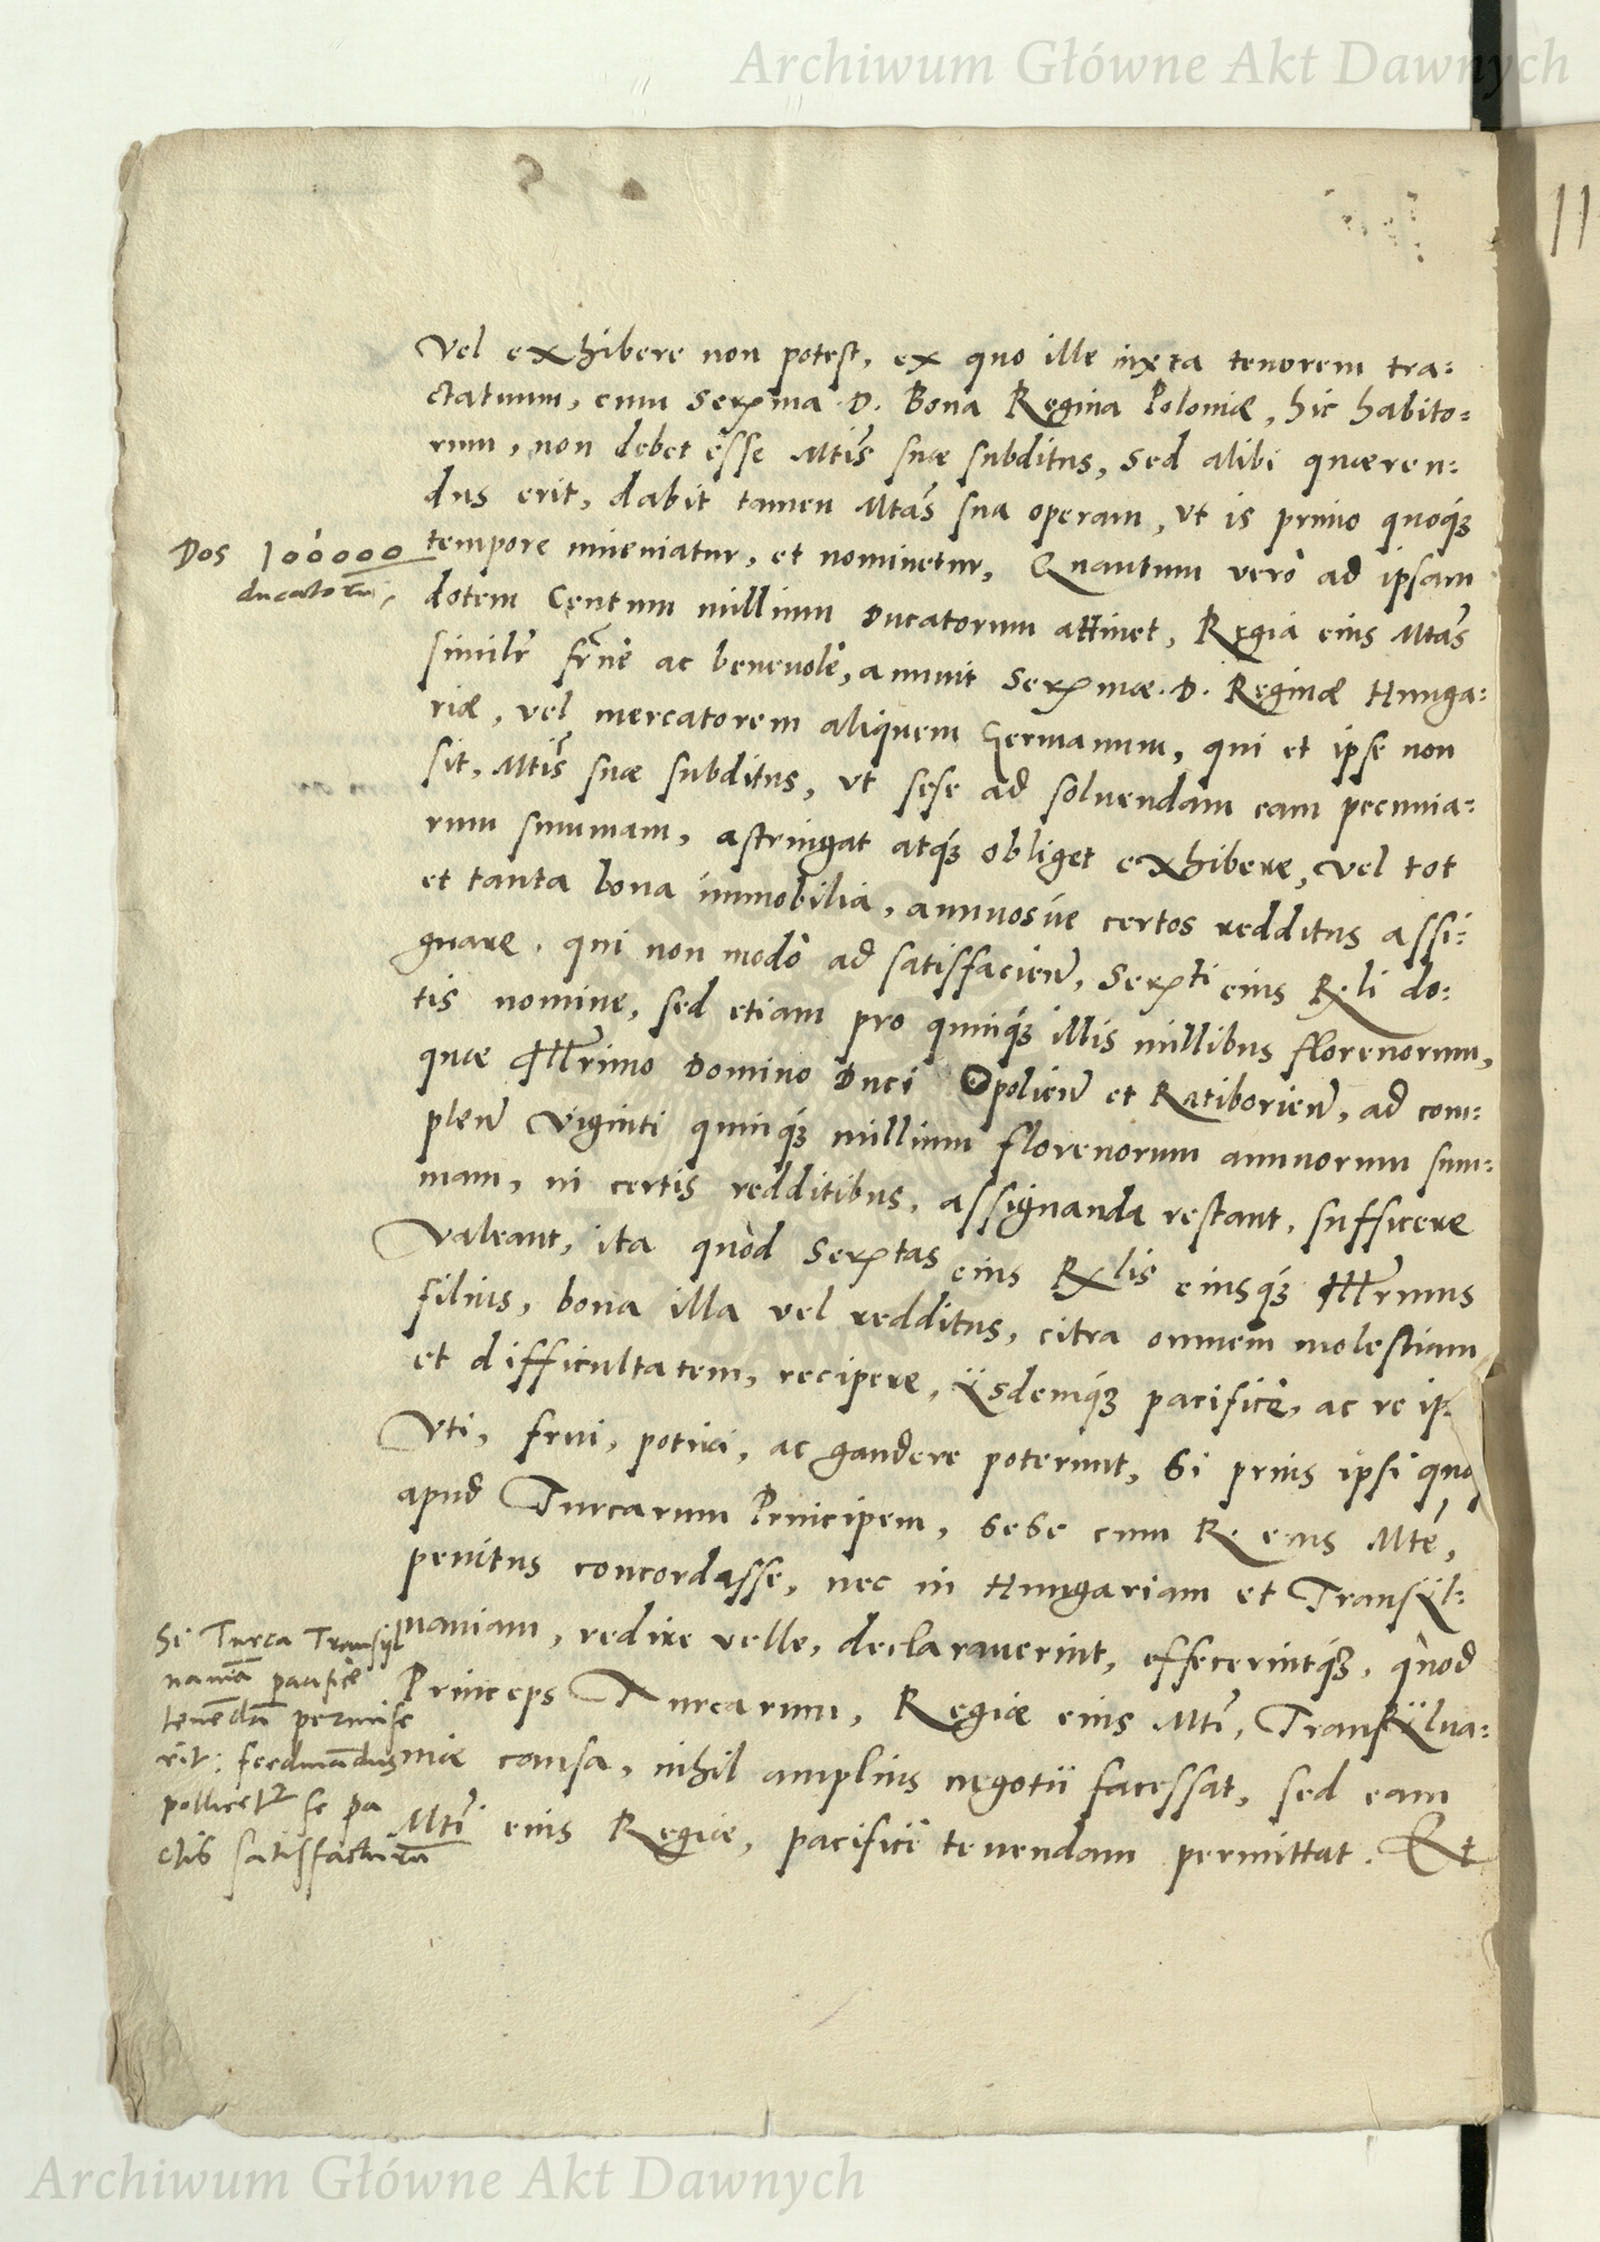 Archiwum Główne Akt Dawnych
11
Vel exhibere non potest, ex quo ille iuxta tenorem tra:
ctatuum, cum Serma. D. Bona Regina Poloniæ, hic habito:
rum, non debet esse Mtis suæ subditus, sed alibi quæren:
dus erit, dabit tamen Mtas sua operam, vt is primo quoq₃
tempore inueniatur, et nominetur, Quantum verò ad ipsam
Dos 100000
ducatorū,
dotem Centum millium Ducatorum attinet, Regia eius Mtas
similr frne ac beneuolè, annuit Sermæ. D. Reginæ Hunga:
riæ, vel mercatorem aliquem Germanum, qui et ipse non
sit, Mtis suæ subditus, vt sese ad soluendam eam pecunia:
rum summam, astringat atq₃ obliget exhibere, vel tot
et tanta bona immobilia, annuosúe certos redditus assi:
gnare, qui non modò ad satisfacien, Serti eius R.li do:
tis nomine, sed etiam pro quinq₃ illis millibus florenorum,
quæ Illrimo Domino Duci Opolien et Ratiborien, ad com:
plen viginti quinq₃ millium florenorum annuorum sum:
mam, in certis redditibus, assignanda restant, sufficere
Valeant, ita quòd Sertas eius Rlis eiusq₃ Illrmus
filius, bona illa vel redditus, citra omnem molestiam
et difficultatem, recipere, ijsdemq₃ pacificè, ac re ip
Vti, frui, potiri, ac gaudere poterunt, Si prius ipsi quo
apud Turcarum Principem, sese cum R. eius Mte,
penitus concordasse, nec in Hungariam et Transÿl:
uaniam, redire velle, declarauerint, effecerintq₃, quòd
Princeps Turcarum, Regiæ eius Mti, Transÿlua:
niæ causa, nihil amplius negotii facessat, sed eam
Mti eius Regiæ, pacificè tenendam permittat. Et
Si Turca Transÿl
uaniā pacificè
tenedā permise
rit: ferdinādus
pollicetr se pa
ctis satisfacturū
Archiwum Główne Akt Dawnych